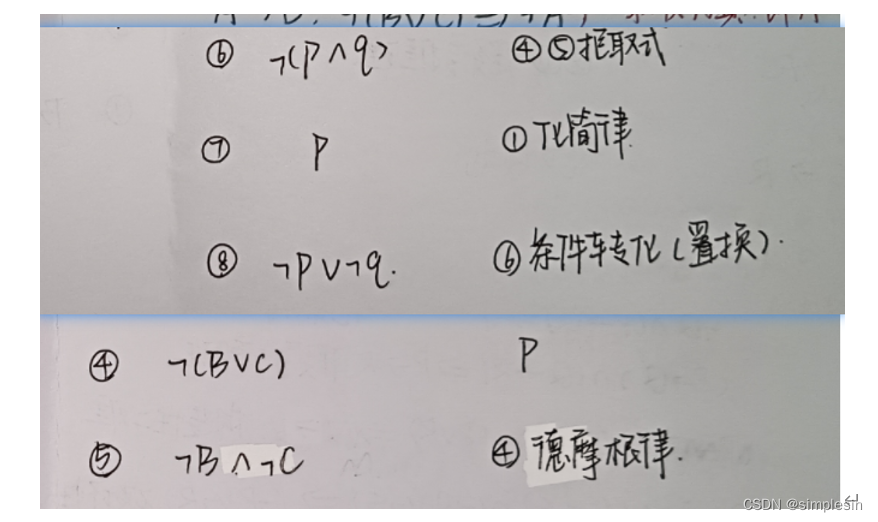 ⑥ ¬(P∧q) ④⑤拒取式
⑦ P ①化简律.
⑧ ¬P∨¬q. ⑥条件转化(置换).
④ ¬(B∨C) P
⑤ ¬B∧¬C ④德摩根律.
CSDN @simplesin